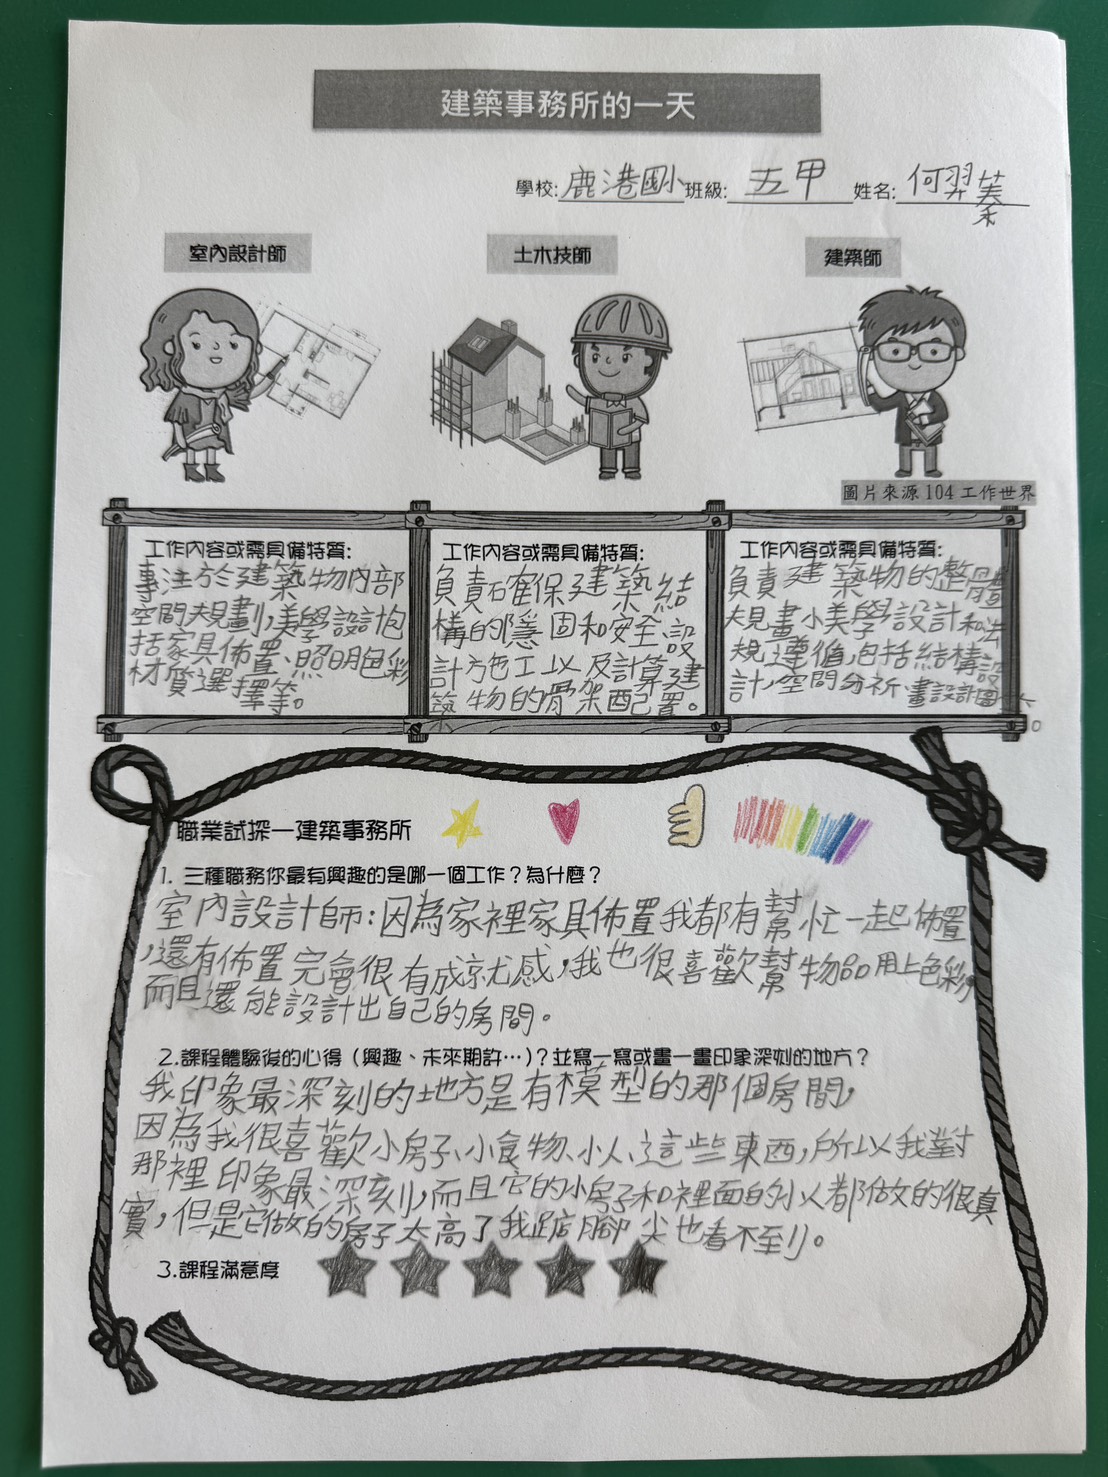 建築事務所的一天
學校:鹿港國小 班級: 五甲 姓名: 何羿蓁
室內設計師
土木技師
建築師
圖片來源 104 工作世界
工作內容或需具備特質:
專注於建築物內部
空間規劃,美學設計抱
括家具佈置、照明色彩
材質選擇等。
工作內容或需具備特質:
負責確保建築結
構的隱固和安全,設
計施工以及計算建
築物的骨架配置。
工作內容或需具備特質:
負責建築物的整體
規畫小美學設計和法
規遵循,包括結構設
計,空間分析,畫設計圖
職業試探—建築事務所
1. 三種職務你最有興趣的是哪一個工作?為什麼?
室內設計師:因為家裡家具佈置我都有幫忙一起佈置
,還有佈置完會很有成就感,我也很喜歡幫物品用上色彩,
而且還能設計出自己的房間。
2.課程體驗後的心得(興趣、未來期許…)?並寫一寫或畫一畫印象深刻的地方?
我印象最深刻的地方是有模型的那個房間,
因為我很喜歡小房子、小食物、小人、這些東西,所以我對
那裡印象最深刻,而且它的小房子和裡面的小人都做的很真
實,但是它做的房子太高了我踮腳尖也看不到。
3.課程滿意度